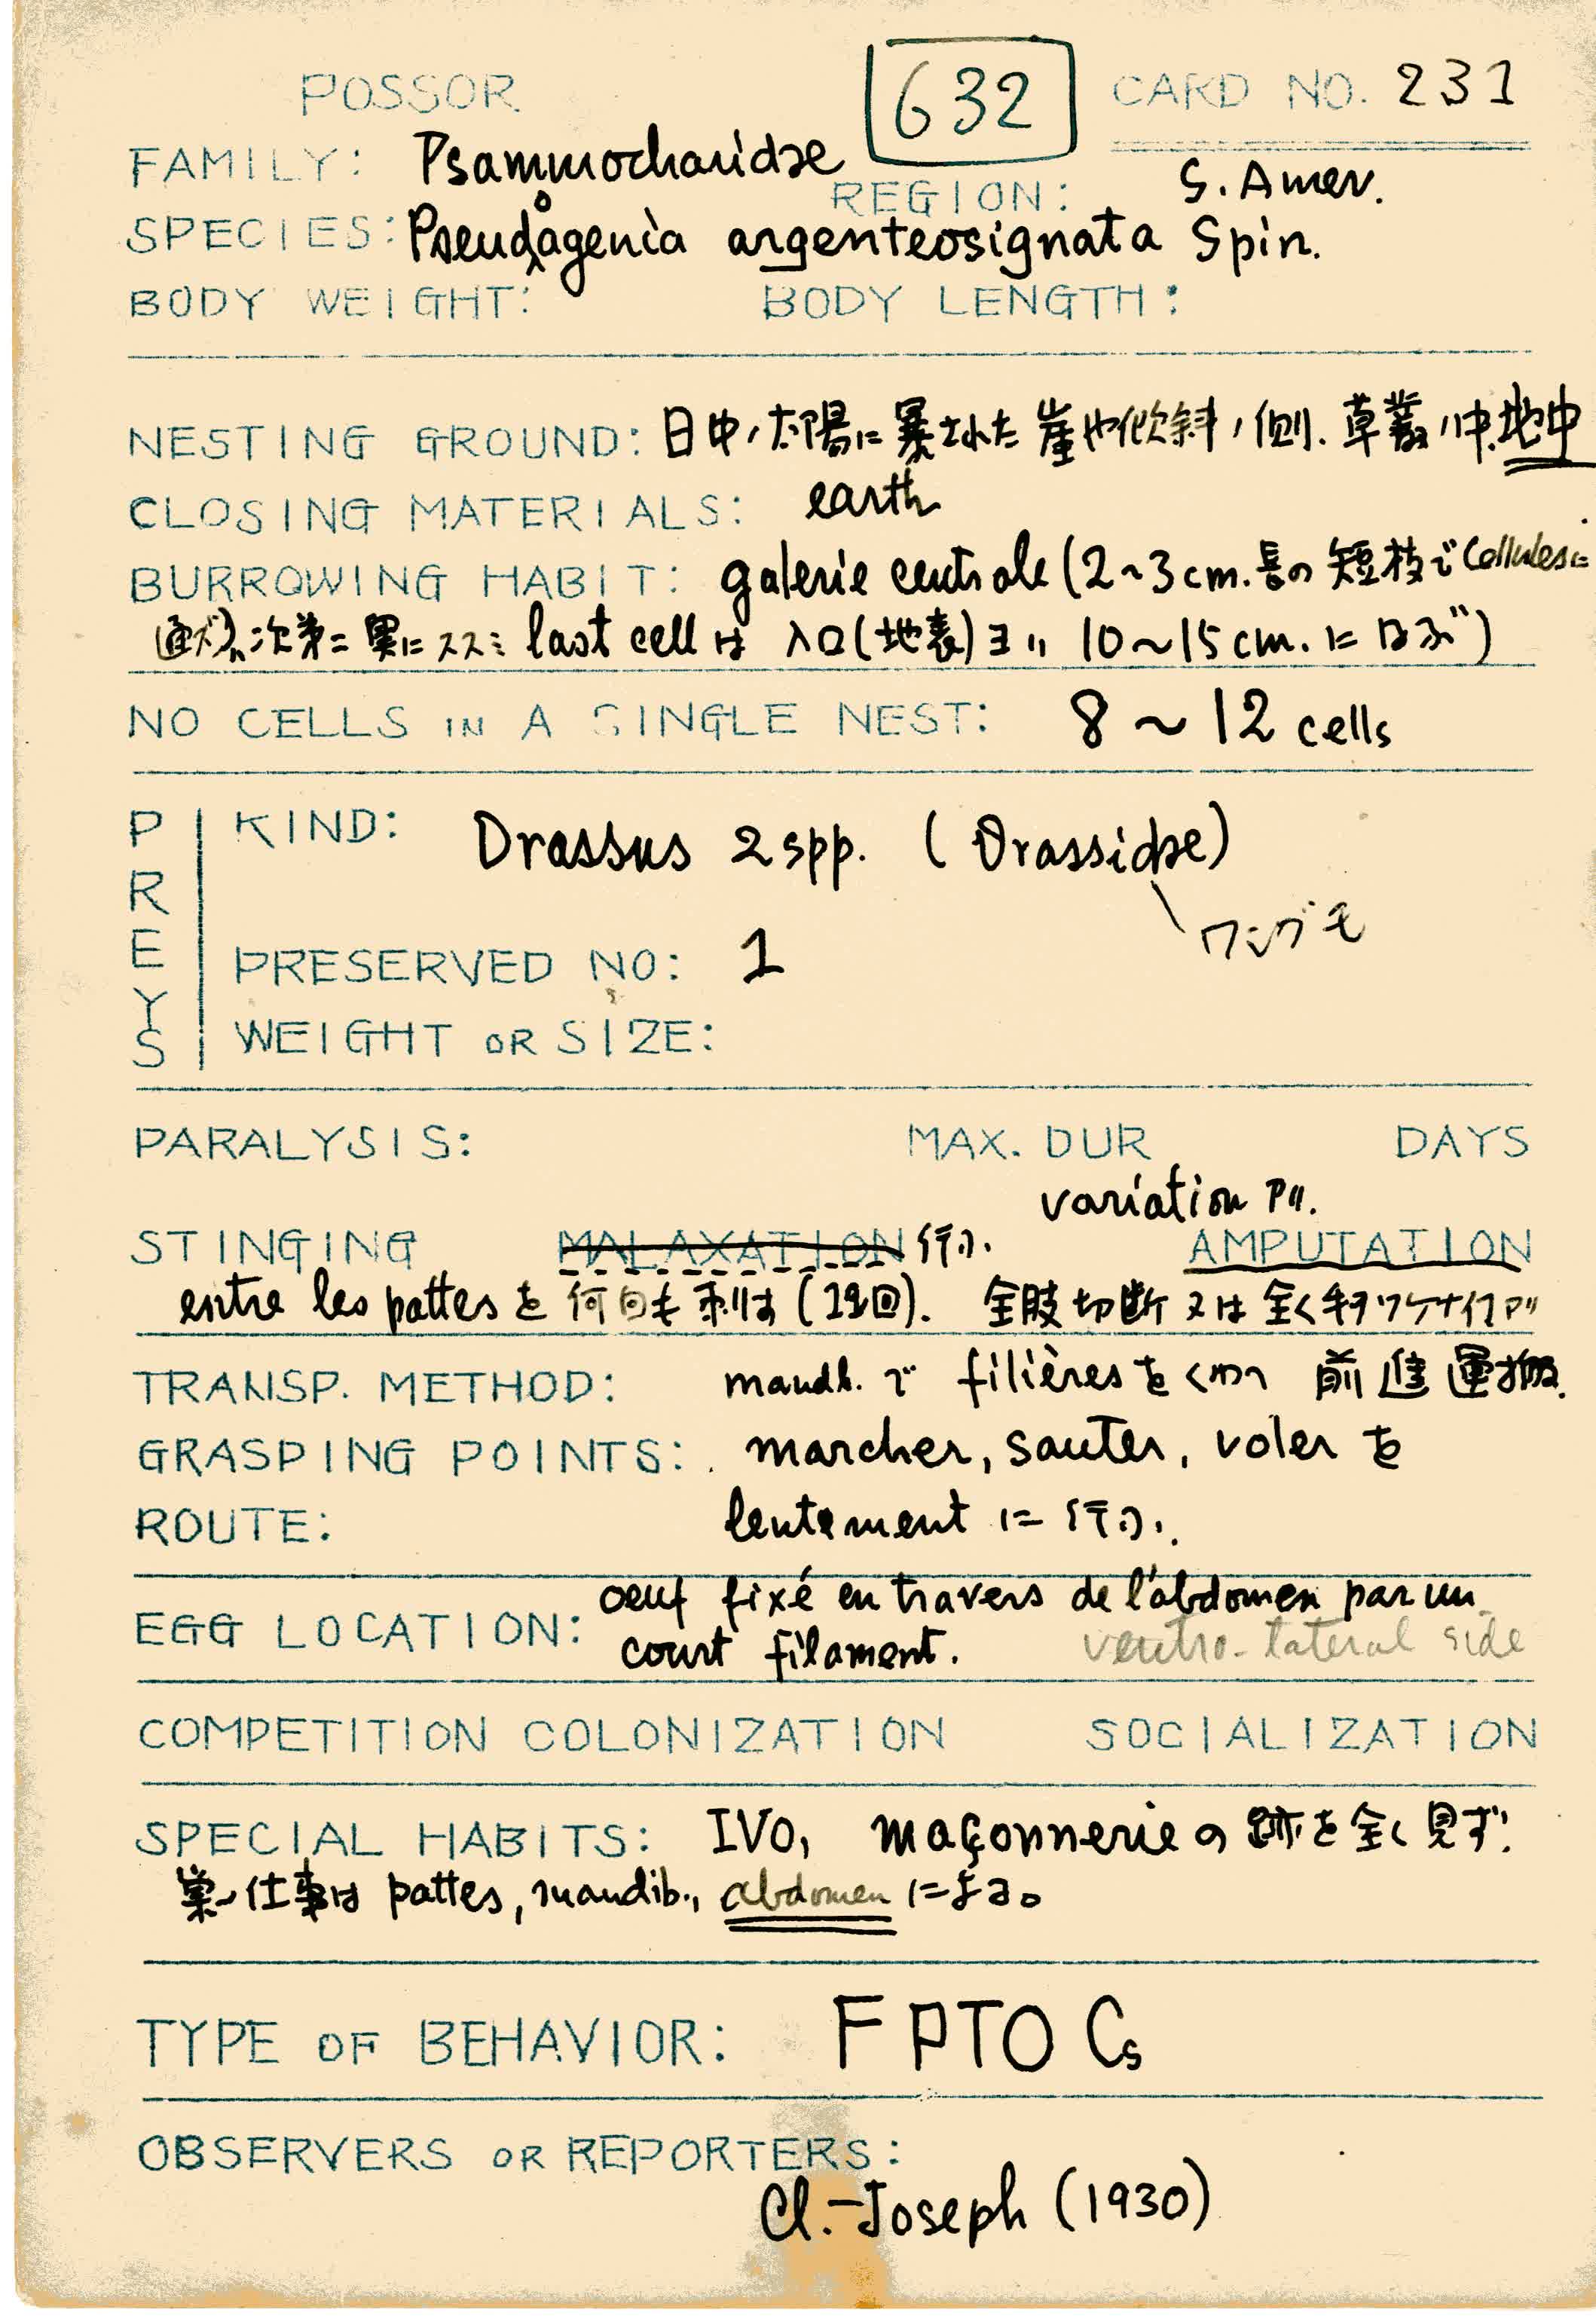 POSSOR 632 CARD NO. 231
FAMILY: Psammocharidae
REGION: S. Amer.
SPECIES: Pseudagenia argenteosignata Spin.
BODY WEIGHT: BODY LENGTH:
NESTING GROUND: 日中ノ太陽に暴された崖や傾斜ノ側. 草叢ノ中.地中
CLOSING MATERIALS: earth
BURROWING HABIT: galerie centrale (2~3cm.長の短枝でCellulesニ
通ズ),次第ニ奥にススミ last cell は入口(地表)ヨリ 10~15cm.に及ぶ)
NO CELLS IN A SINGLE NEST: 8 ~ 12 cells
PREYS
KIND: Drassus 2spp. (Drassidae)
ワシグモ
PRESERVED NO: 1
WEIGHT OR SIZE:
PARALYSIS: MAX. DUR DAYS
variation アリ.
STINGING MALAXATION 行う. AMPUTATION
entre les pattes を何回も刺す. 全肢切断又は全く
TRANSP. METHOD: mandb. で filières をくわへ 前進運搬.
GRASPING POINTS: marcher, sauter, voler を
ROUTE: lentement に行う.
EGG LOCATION: oeuf fixé en travers de l'abdomen par un
court filament. ventro-lateral side
COMPETITION COLONIZATION SOCIALIZATION
SPECIAL HABITS: IVO, maçonnerie の跡を全く見ず.
巣ノ仕事は pattes, mandib., abdomen による。
TYPE OF BEHAVIOR: F PTO Cs
OBSERVERS OR REPORTERS:
Cl.-Joseph (1930)